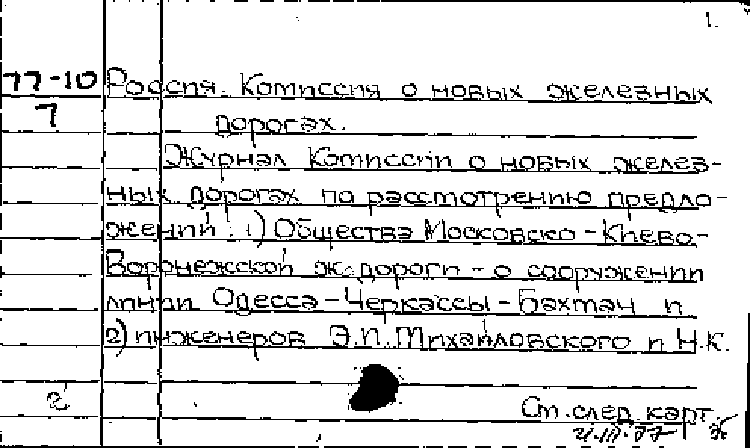 1.
77-10 Россия. Комиссия о новых железных
7 дорогах.
Журнал Комиссии о новых желез-
ных дорогах по рассмотрению предло-
жений: 1) Общества Московско-Киево-
Воронежской ж. дороги - о сооружении
линии Одесса-Черкассы-Бахмач и
2) инженеров Э.П. Михайловского и Н.К.
2
См. след. карт.